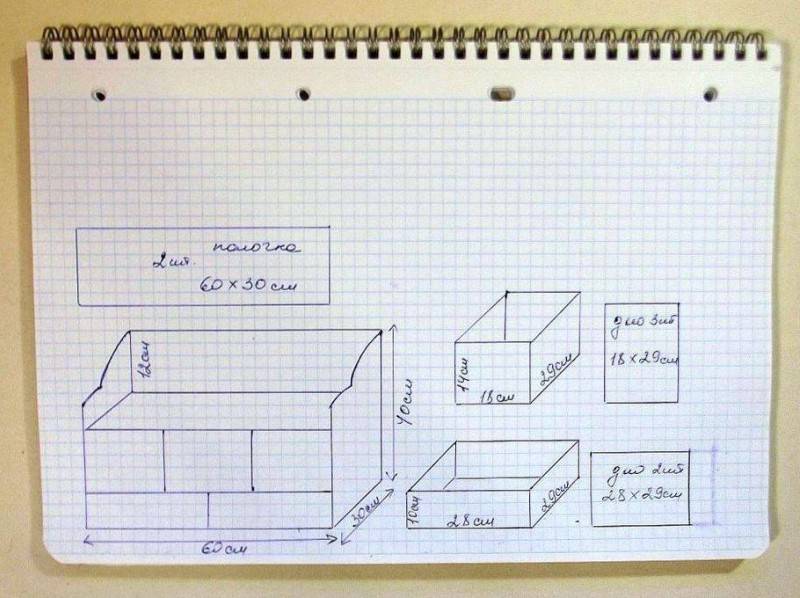 полочка
2 шт.
60 × 30 см
12 см
40 см
30 см
60 см
14 см
18 см
29 см
дно 3 шт
18 × 29 см
10 см
28 см
29 см
дно 2 шт
28 × 29 см